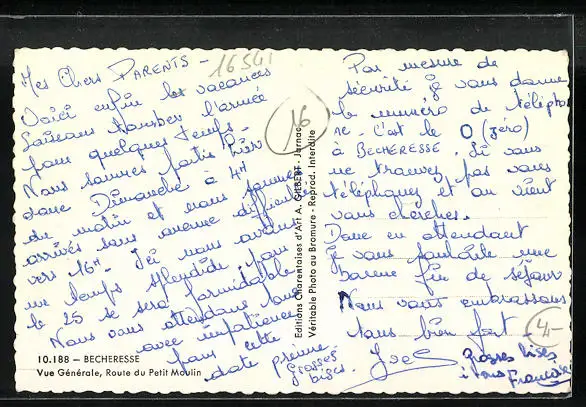 Mes Chers PARENTS -
16541
Voici enfin les vacances
laissons tomber l'armée
pour quelques temps.
Nous sommes partis hier
donc Dimanche à 4H
du matin et nous sommes
arrivés sans aucune difficultés
vers 16H. Ici nous avons
un temps splendide pour
le 25 se sera formidable
Nous vous attendons tous
avec impatience
pour cette
date prévue
Grosses
bises.
10.188 – BECHERESSE
Vue Générale, Route du Petit Moulin
16
Editions Charentaises d'Art A. GILBERT - Jarnac
Véritable Photo au Bromure - Reprod. Interdite
Par mesure de
sécurité je vous donne
le numéro de téléph
ne - c'est le 0 (zéro)
à BECHERESSE. Si vous
ne trouvez pas vous
téléphonez et on vient
vous chercher.
Donc en attendant
je vous souhaite une
bonne fin de séjour
Nous vous embrassons
tous bien fort
4,-
Grosses bises
à tous
Françoise